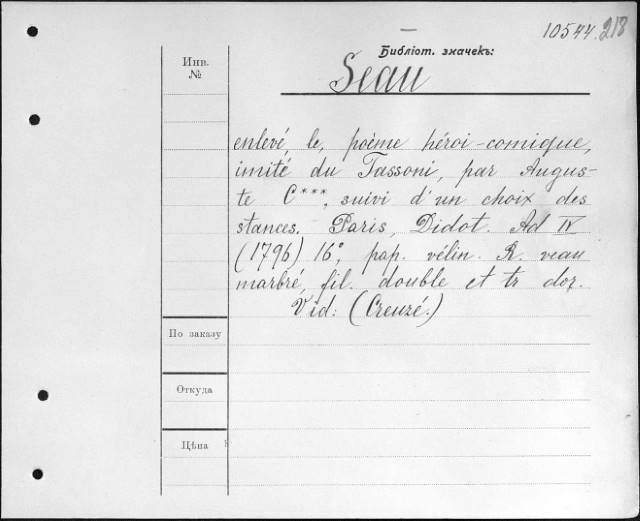 10544. 218
Библіот. значекъ:
Seau
Инв.
№
enlevé, le, poème héroi-comique,
imité du Tassoni, par Augus-
te C***, suivi d'un choix des
stances. Paris, Didot. Ad IV
(1796) 16°, pap. vélin. R. veau
marbré, fil. double et tr doz.
Vid: (Creuzé.)
По заказу
Откуда
Цѣна